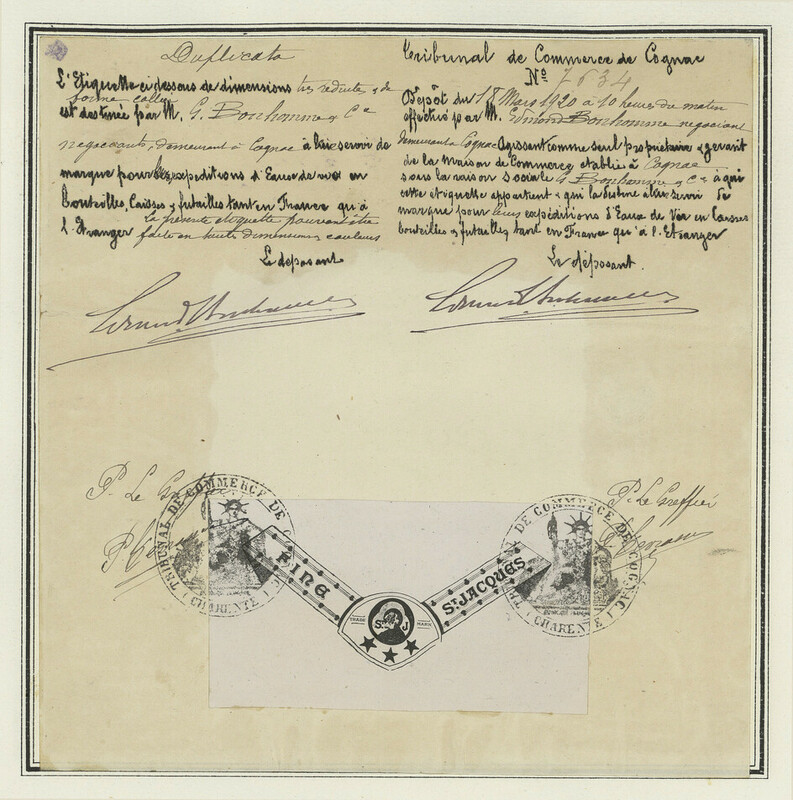 Duplicata
L'Etiquette ci dessous de dimensions très réduite & de
forme collier
est destinée par M. G. Bonhomme & Cie
negociants, demeurant à Cognac à lui servir de
marque pour les expéditions d'Eaux de vie en
bouteilles, Caisses & futailles tant en France qu'à
l'Etranger la présente étiquette pouvant être
faite en toutes dimensions & couleurs
Le déposant
Tribunal de Commerce de Cognac
N° 7634
Dépôt du 18 Mars 1920 à 10 heures du matin
effectué par M. Edmond Bonhomme negociant
demeurant à Cognac Agissant comme seul propriétaire & gérant
de la Maison de Commerce établie à Cognac
sous la raison sociale G. Bonhomme & Cie à qui
cette etiquette appartient & qui la destine à lui servir de
marque pour leurs expéditions d'Eaux de Vie en caisses
bouteilles & futailles tant en France qu'à l'Etranger
Le déposant
P. Le Greffier
TRIBUNAL DE COMMERCE DE
CHARENTE
P. Le Greffier
DE COMMERCE DE COGNAC
CHARENTE
FINE
ST JACQUES
TRADE
S J
MARK